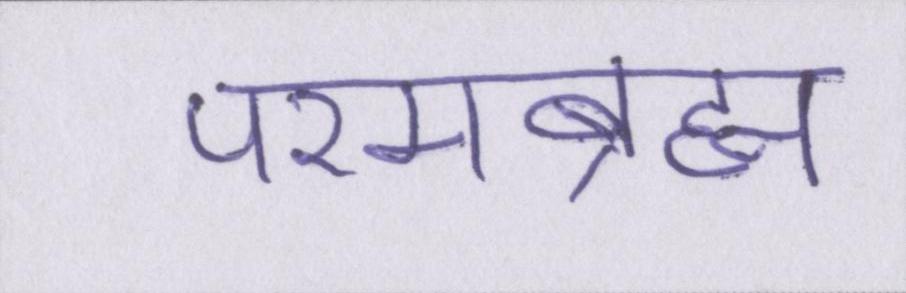 परमब्रह्म